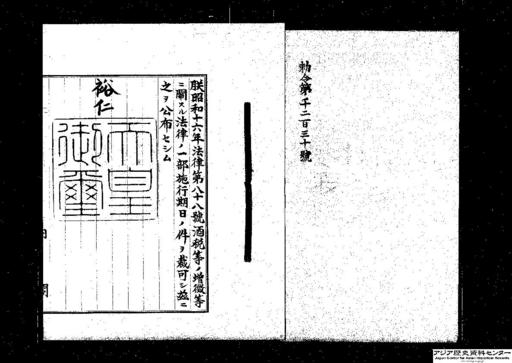 勅令第千二百三十號
朕昭和十六年法律第八十八號酒税等ノ増徴等
ニ關スル法律ノ一部施行期日ノ件ヲ裁可シ茲ニ
之ヲ公布セシム
裕仁
天皇
御璽
アジア歴史資料センター
Japan Center for Asian Historical Records